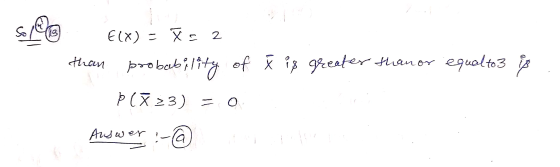 Sol 13
E(X) = X̄ = 2
than probability of X̄ is greater than or equal to 3 is
P(X̄ ≥ 3) = 0
Answer :- ⓐ